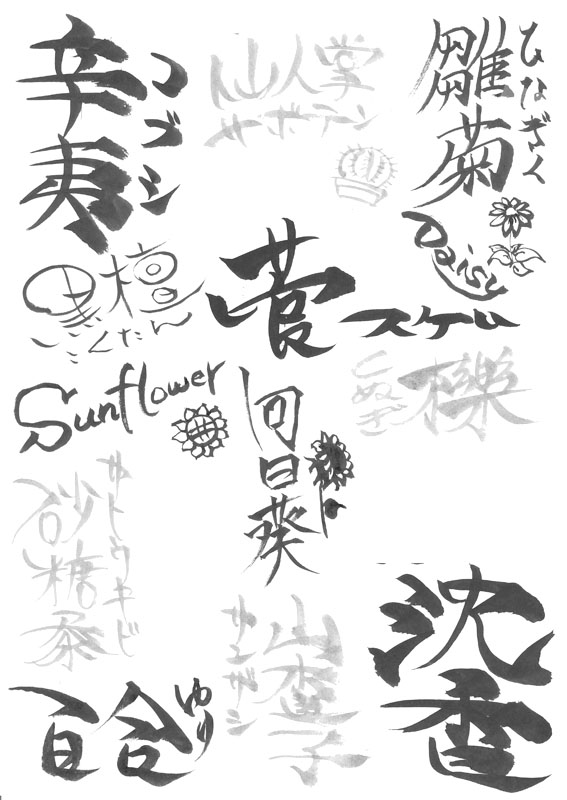 辛夷
コブシ
仙人掌
サボテン
雛菊
ひなぎく
Daisy
黒檀
こくたん
菅
スゲ
櫟
くぬぎ
Sunflower
向日葵
サトウキビ
砂糖黍
山査子
サンザシ
沈香
百合
ゆり